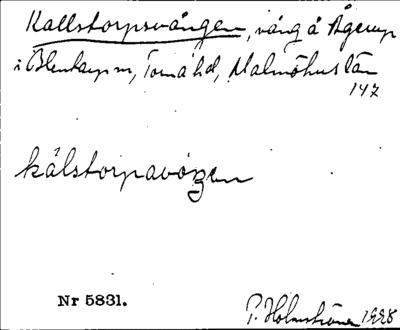 Kallstorpsvången, vång å Ågerup
i Blentarp sn, Torna hd, Malmöhus län
147
kålstorpavåŋen
Nr 5831.
P. Holmström 1998